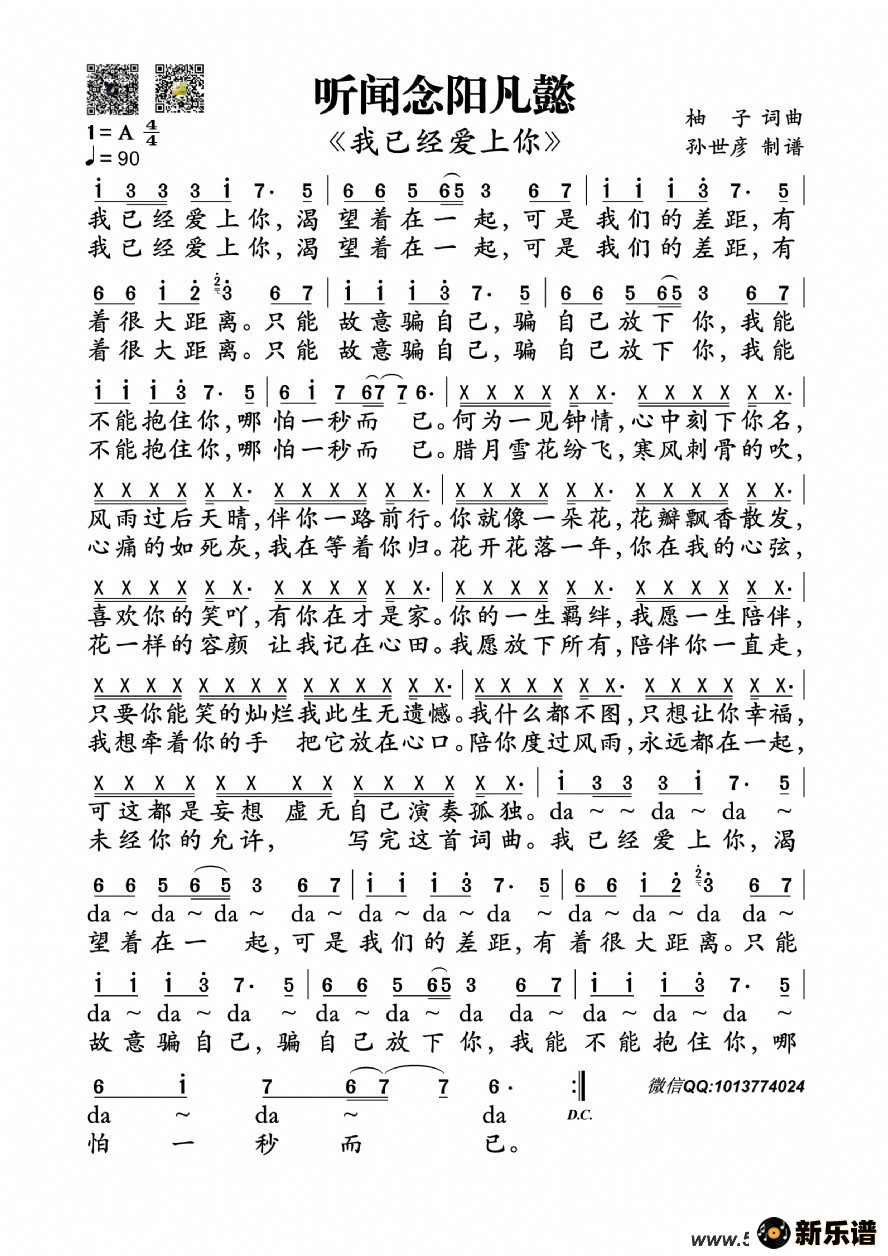 听闻念阳凡懿
《我已经爱上你》
柚 子 词曲
孙世彦 制谱
1= A 4/4
♩= 90
i 3 3 3 i 7· 5 | 6 6 5 6 5 3 6 7 | i i i 3 7· 5 |
我已经爱上你,渴 望着在一起,可是 我们的差距,有
我已经爱上你,渴 望着在一起,可是 我们的差距,有
6 6 i 2 2 3 6 7 | i i i 3 7· 5 | 6 6 5 6 5 3 6 7 |
着很大距离。只能 故意骗自己,骗 自己放下你,我能
着很大距离。只能 故意骗自己,骗 自己放下你,我能
i i i 3 7· 5 | 6 i 7 6 7 7 6· | X X X X X X· X X X X X X· |
不能抱住你,哪 怕一秒而 已。何为一见钟情,心中刻下你名,
不能抱住你,哪 怕一秒而 已。腊月雪花纷飞,寒风刺骨的吹,
X X X X X X· X X X X X X· | X X X X X X· X X X X X X· |
风雨过后天晴,伴你一路前行。你就像一朵花,花瓣飘香散发,
心痛的如死灰,我在等着你归。花开花落一年,你在我的心弦,
X X X X X X· X X X X X X· | X X X X X X· X X X X X X· |
喜欢你的笑吖,有你在才是家。你的一生羁绊,我愿一生陪伴,
花一样的容颜 让我记在心田。我愿放下所有,陪伴你一直走,
X X X X X X X X X X X X X X· | X X X X X X· X X X X X X· |
只要你能笑的灿烂我此生无遗憾。我什么都不图,只想让你幸福,
我想牵着你的手 把它放在心口。陪你度过风雨,永远都在一起,
X X X X X X X X X X X X X X· | i 3 3 3 i 7· 5 |
可这都是妄想 虚无自己演奏孤独。da ~ ~ da ~ da ~
未经你的允许, 写完这首词曲。我已经爱上你,渴
6 6 5 6 5 3 6 7 | i i i 3 7· 5 | 6 6 i 2 2 3 6 7 |
da ~ da ~ da ~ da ~ da ~ da ~ da ~ da ~ da ~ da ~
望着在一 起,可是我们的差距,有着很大距离。只能
i i i 3 7· 5 | 6 6 5 6 5 3 6 7 | i i i 3 7· 5 |
da ~ da ~ da ~ da ~ da ~ da da ~ da ~ da ~ da ~
故意骗自己,骗自己放下你,我能不能抱住你,哪
6 i 7 6 7 7 6· :||
微信QQ:1013774024
da ~ da ~ da D.C.
怕 一 秒 而 已。
www.5
新乐谱